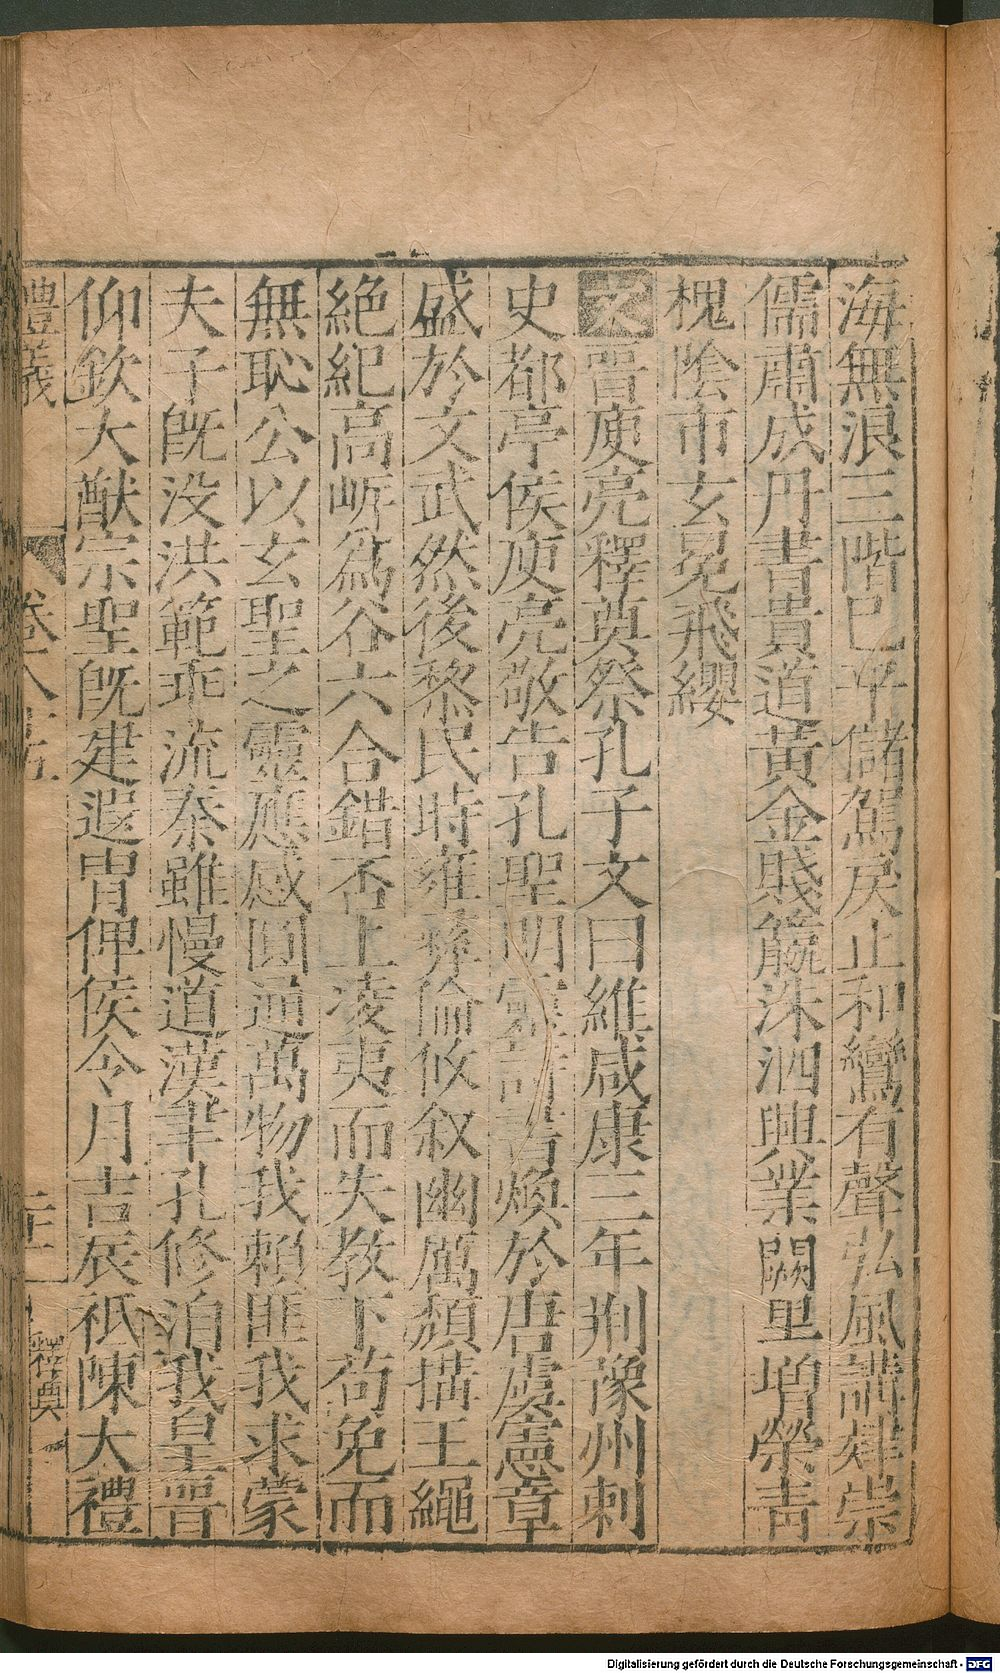 海無浪三階已平儲駕戾止和鸞有聲弘風講肆崇
儒肅成丹書貴道黃金賤籝洙泗興業闕里增榮青
槐陰市玄冕飛纓
文晉庾亮釋奠祭孔子文曰維咸康三年荆豫州刺
史都亭侯庾亮敬告孔聖明靈詩書煥於唐虞憲章
盛於文武然後黎民時雍彝倫攸叙幽厲頹㩦王繩
絕紀高岍爲谷六合錯否上凌夷而失教下苟免而
無恥公以玄聖之靈應感圓通萬物我賴匪我求蒙
夫子旣没洪範乖流秦雖慢道漢聿孔修洎我皇晉
仰欽大猷宗聖旣建遐胄俾侯令月吉辰祗陳大禮
禮義 卷八十五 二十一 程典
Digitalisierung gefördert durch die Deutsche Forschungsgemeinschaft - DFG